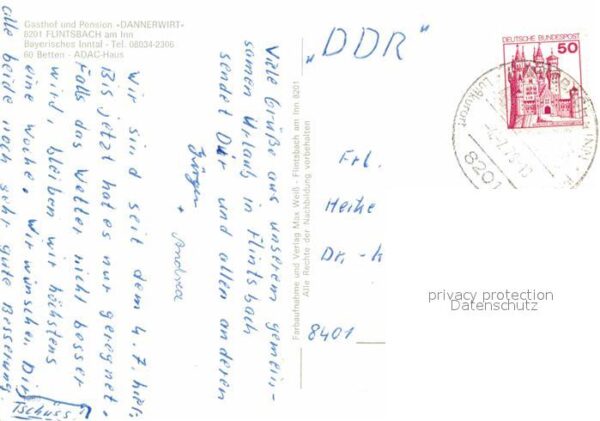 Gasthof und Pension «DANNERWIRT»
8201 FLINTSBACH am Inn
Bayerisches Inntal - Tel. 08034-2306
60 Betten - ADAC-Haus
Viele Grüße aus unserem gemein-
samen Urlaub in Flintsbach
sendet Dir und allen anderen
Jürgen + Andrea
Wir sind seit dem 4.7. hier.
Bis jetzt hat es nur geregnet.
Falls das Wetter nicht besser
wird, bleiben wir höchstens
eine Woche. Wir wünschen Dir
alle beide noch sehr gute Besserung.
Tschüss!
Farbaufnahme und Verlag Max Weiß - Flintsbach am Inn 8201
Alle Rechte der Nachbildung vorbehalten
"DDR"
Frl.
Heike
Dr.-h
8401
DEUTSCHE BUNDESPOST
50
Luftkurort
8201
privacy protection
Datenschutz